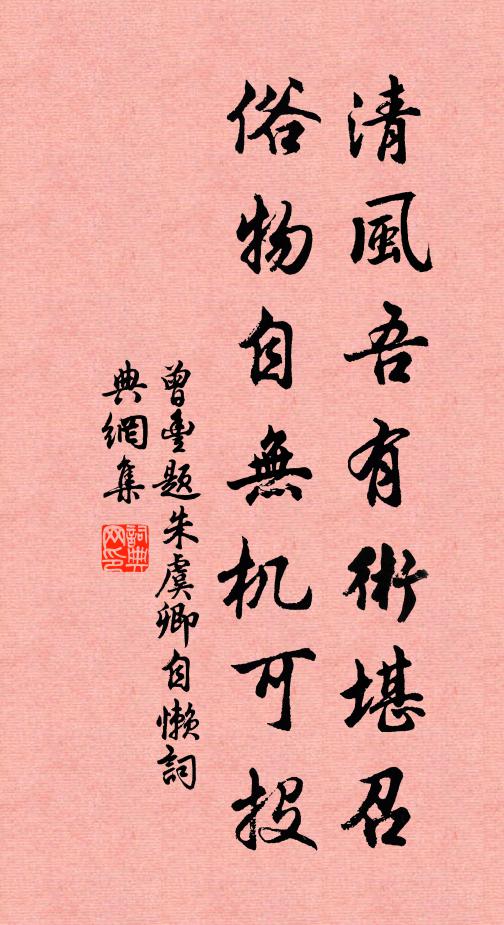 清風吾有術堪召
俗物自無机可投
曾豐题朱虞卿自懒詞
典網集
詞典网印